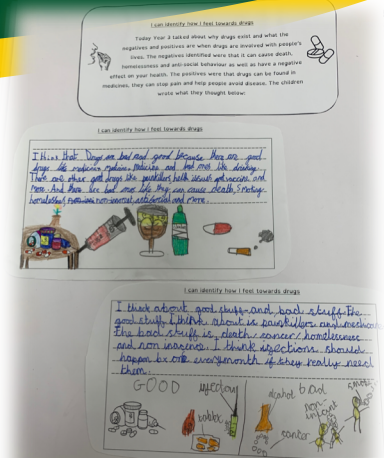 I can identify how I feel towards drugs
Today Year 3 talked about why drugs exist and what the
negatives and positives are when drugs are involved with people's
lives. The negatives identified were that it can cause death,
homelessness and anti-social behaviour as well as have a negative
effect on your health. The positives were that drugs can be found in
medicines, they can stop pain and help people avoid disease. The children
wrote what they thought below:
I can identify how I feel towards drugs
I think that Drugs are bad and good because there are good
drugs like medicine and bad ones like
There are other good drugs like painkillers, vaccines and
more. And there are bad ones like they can cause death, smoking
homeless, and more.
I can identify how I feel towards drugs
I think about good stuff and bad stuff. The
good stuff I think about is painkillers and
the bad stuff is death/cancer/homelessness
and non I think injections should
happen be one every month if they really need
them.
GOOD
botox
alcohol bad
smoke